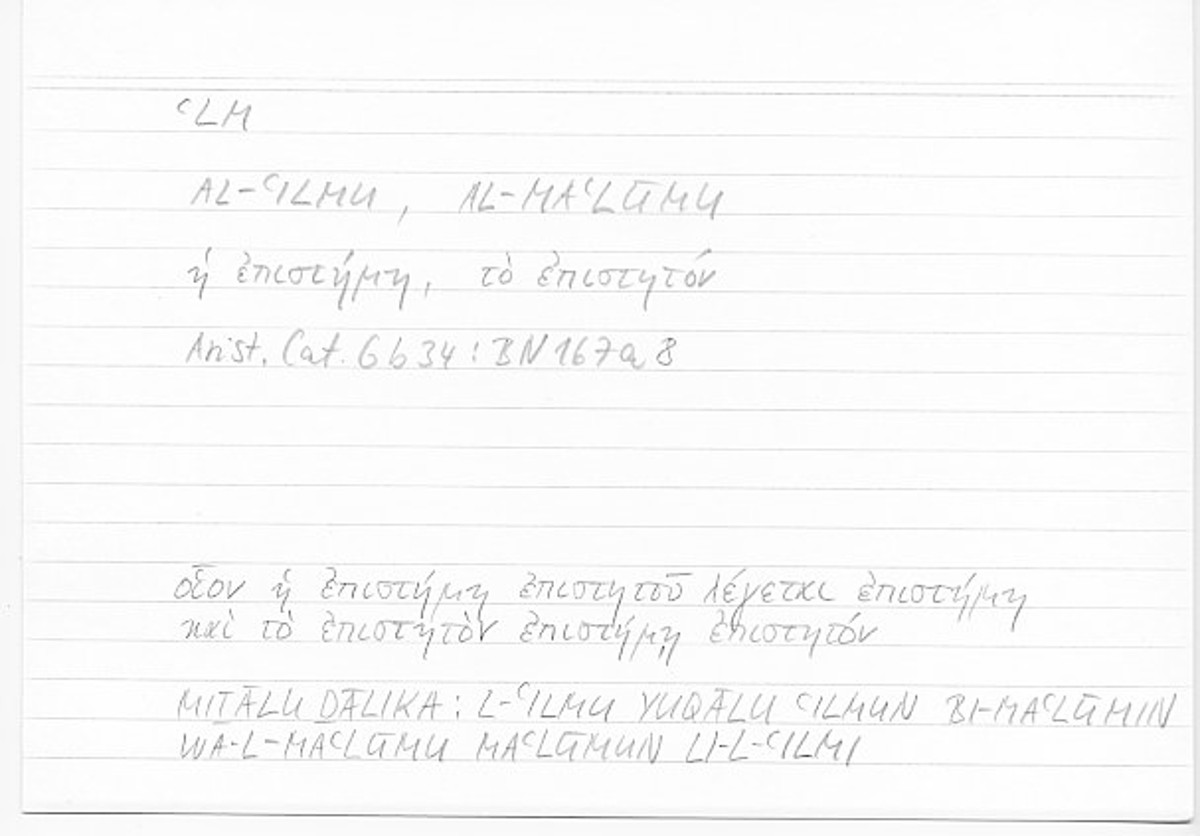 ʿLM
AL-ʿILMU, AL-MAʿLŪMU
ἡ ἐπιστήμη, τὸ ἐπιστητόν
Arist. Cat. 6b34: BN 167a8
οἷον ἡ ἐπιστήμη ἐπιστητοῦ λέγεται ἐπιστήμη
καὶ τὸ ἐπιστητὸν ἐπιστήμῃ ἐπιστητόν
MIṮĀLU ḎĀLIKA: L-ʿILMU YUQĀLU ʿILMUN BI-MAʿLŪMIN
WA-L-MAʿLŪMU MAʿLŪMUN LI-L-ʿILMI